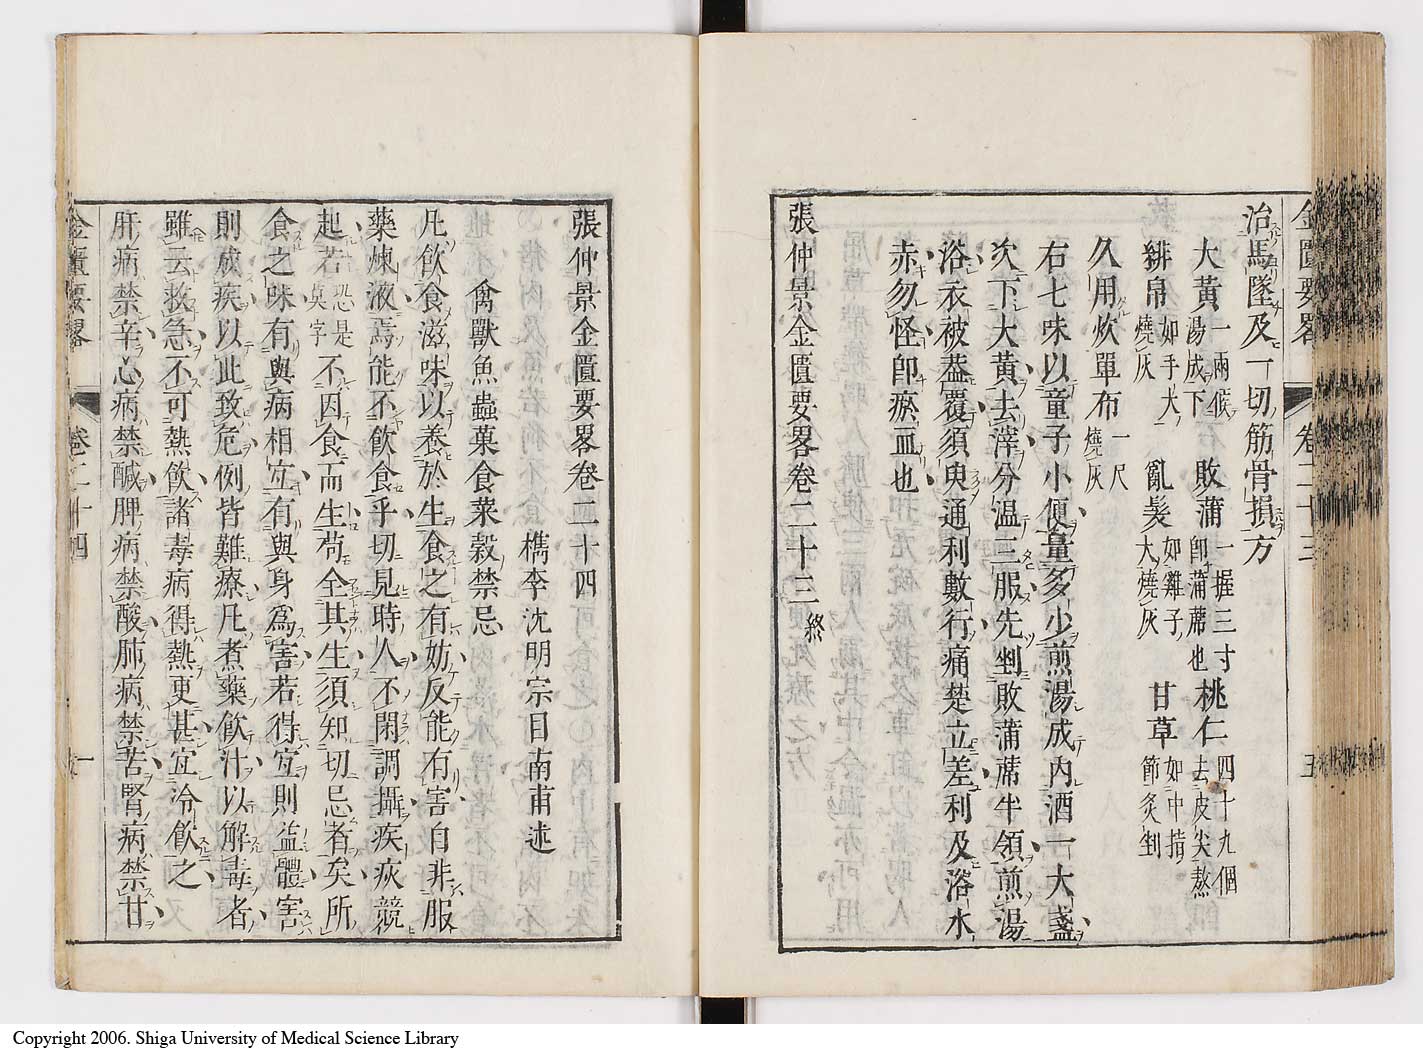 金匱要畧 卷二十三 五
治馬墜及一切筋骨損方
大黃一兩㑴湯成下 敗蒲一握三寸卽蒲蓆也 桃仁四十九個去皮尖熬
緋帛如手大燒灰 亂髮如雞子大燒灰 甘草如中指節炙剉
久用炊單布一尺燒灰
右七味以童子小便量多少煎湯成內酒一大盞
次下大黃去滓分温三服先剉敗蒲蓆半領煎湯
浴衣被葢覆須臾通利數行痛楚立差利及浴水
赤勿怪卽瘀血也
張仲景金匱要畧卷二十三終
張仲景金匱要畧卷二十四
檇李沈明宗目南甫述
禽獸魚蟲菓食菜穀禁忌
凡飲食滋味以養於生食之有妨反能有害自非服
藥煉液焉能不飲食乎切見時人不閑調攝疾疢競
起若恐是莫字不因食而生苟全其生須知切忌者矣所
食之味有與病相宜有與身爲害若得宜則益體害
則成疾以此致危例皆難療凡煮藥飲汁以解毒者
雖云救急不可熱飲諸毒病得熱更甚宜冷飲之
肝病禁辛心病禁鹹脾病禁酸肺病禁苦腎病禁甘
金匱要畧 卷二十四 一
Copyright 2006. Shiga University of Medical Science Library